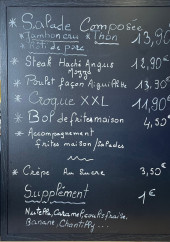 * Salade Composée
* Jambon cru * Thon 13,90
* Rôti de porc
* Steak Haché Angus 12,90€
Mozza
* Poulet façon Aiguillette 13,90€
* Croque XXL 11,90€
* Bol de frites maison 4,50€
* Accompagnement
frites maison/Salades
* Crêpe Au Sucre 3,50€
Supplément 1€
Nutella, Caramel, confis fraise,
Banane, Chantilly...